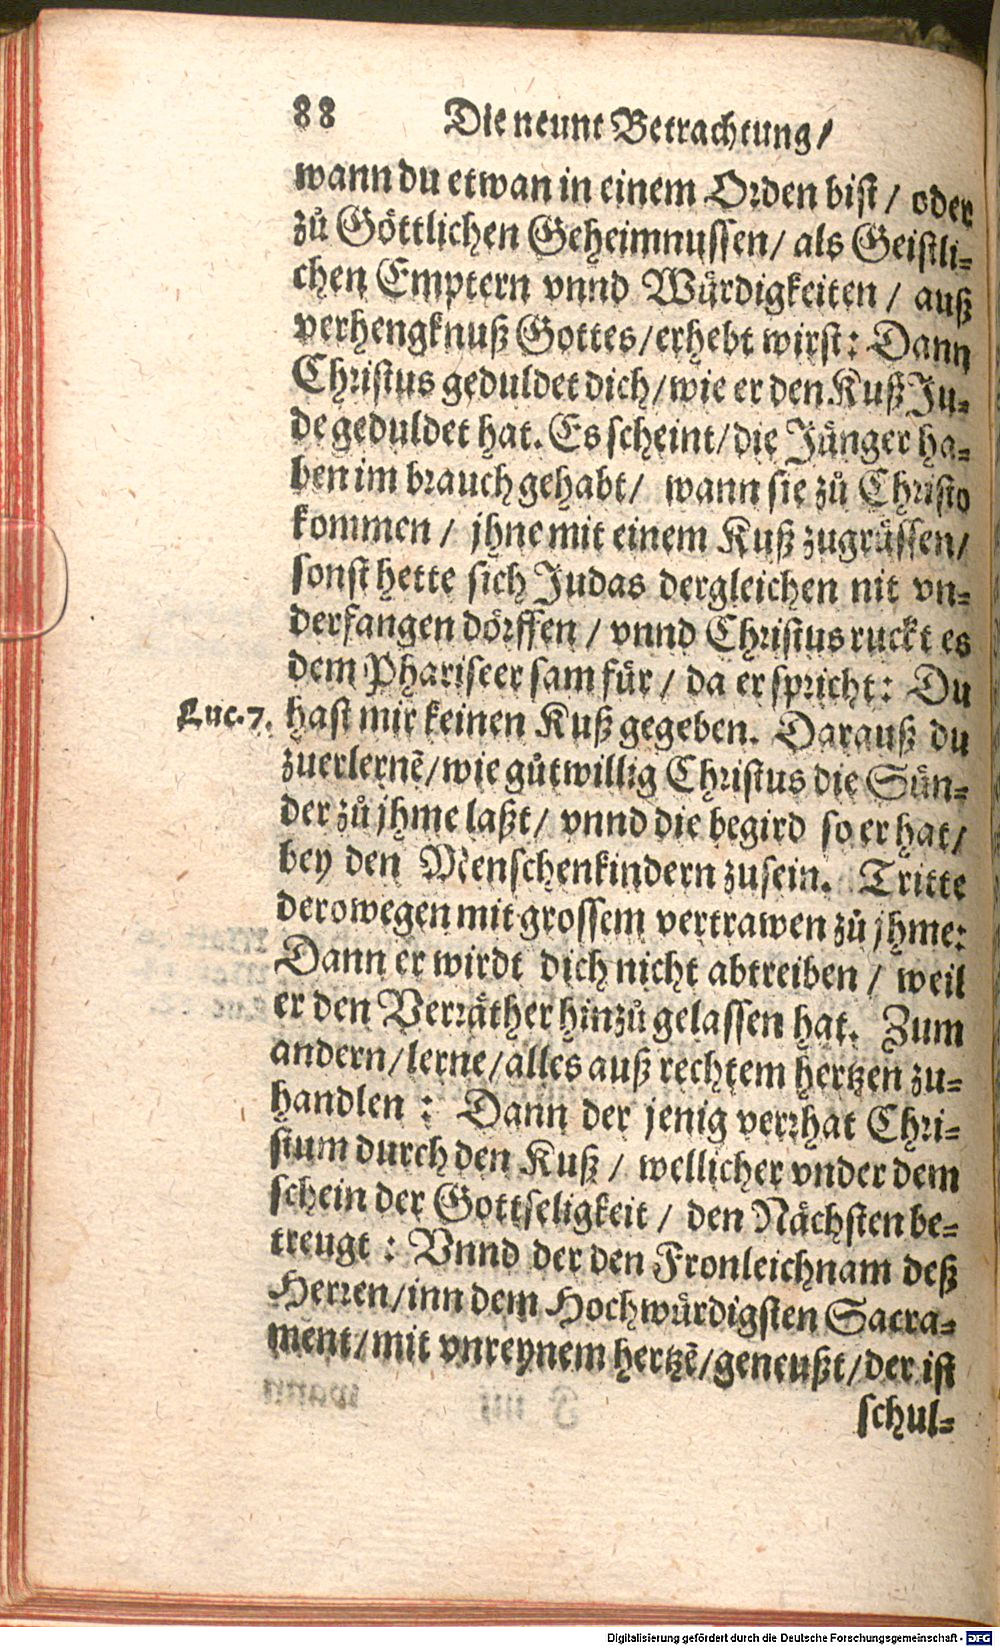 88 Die neunt Betrachtung/
wann du etwan in einem Orden bist / oder
zů Göttlichen Geheimnussen/ als Geistli-
chen Emptern vnnd Wuͤrdigkeiten / auß
verhengknuß Gottes/erhebt wirst: Dann
Christus geduldet dich/wie er den Kuß Ju-
de geduldet hat. Es scheint/die Jünger ha-
ben im brauch gehabt/ wann sie zů Christo
kommen / jhne mit einem Kuß zugrüssen/
sonst hette sich Judas dergleichen nit vn-
derfangen dörffen / vnnd Christus ruckt es
dem Phariseer sam für / da er spricht: Du
Luc. 7. hast mir keinen Kuß gegeben. Darauß du
zuerlernẽ/wie gůtwillig Christus die Sün-
der zů jhme laßt/ vnnd die begird so er hat/
bey den Menschenkindern zusein. Tritte
derowegen mit grossem vertrawen zů jhme:
Dann er wirdt dich nicht abtreiben / weil
er den Verräther hinzů gelassen hat. Zum
andern/lerne/alles auß rechtem hertzen zu-
handlen : Dann der jenig verrhat Chri-
stum durch den Kuß / wellicher vnder dem
schein der Gottseligkeit / den Nächsten be-
treugt : Vnnd der den Fronleichnam deß
Herren/inn dem Hochwürdigsten Sacra-
ment/mit vnreynem hertzẽ/geneußt/der ist
schul-
Digitalisierung gefördert durch die Deutsche Forschungsgemeinschaft - DFG